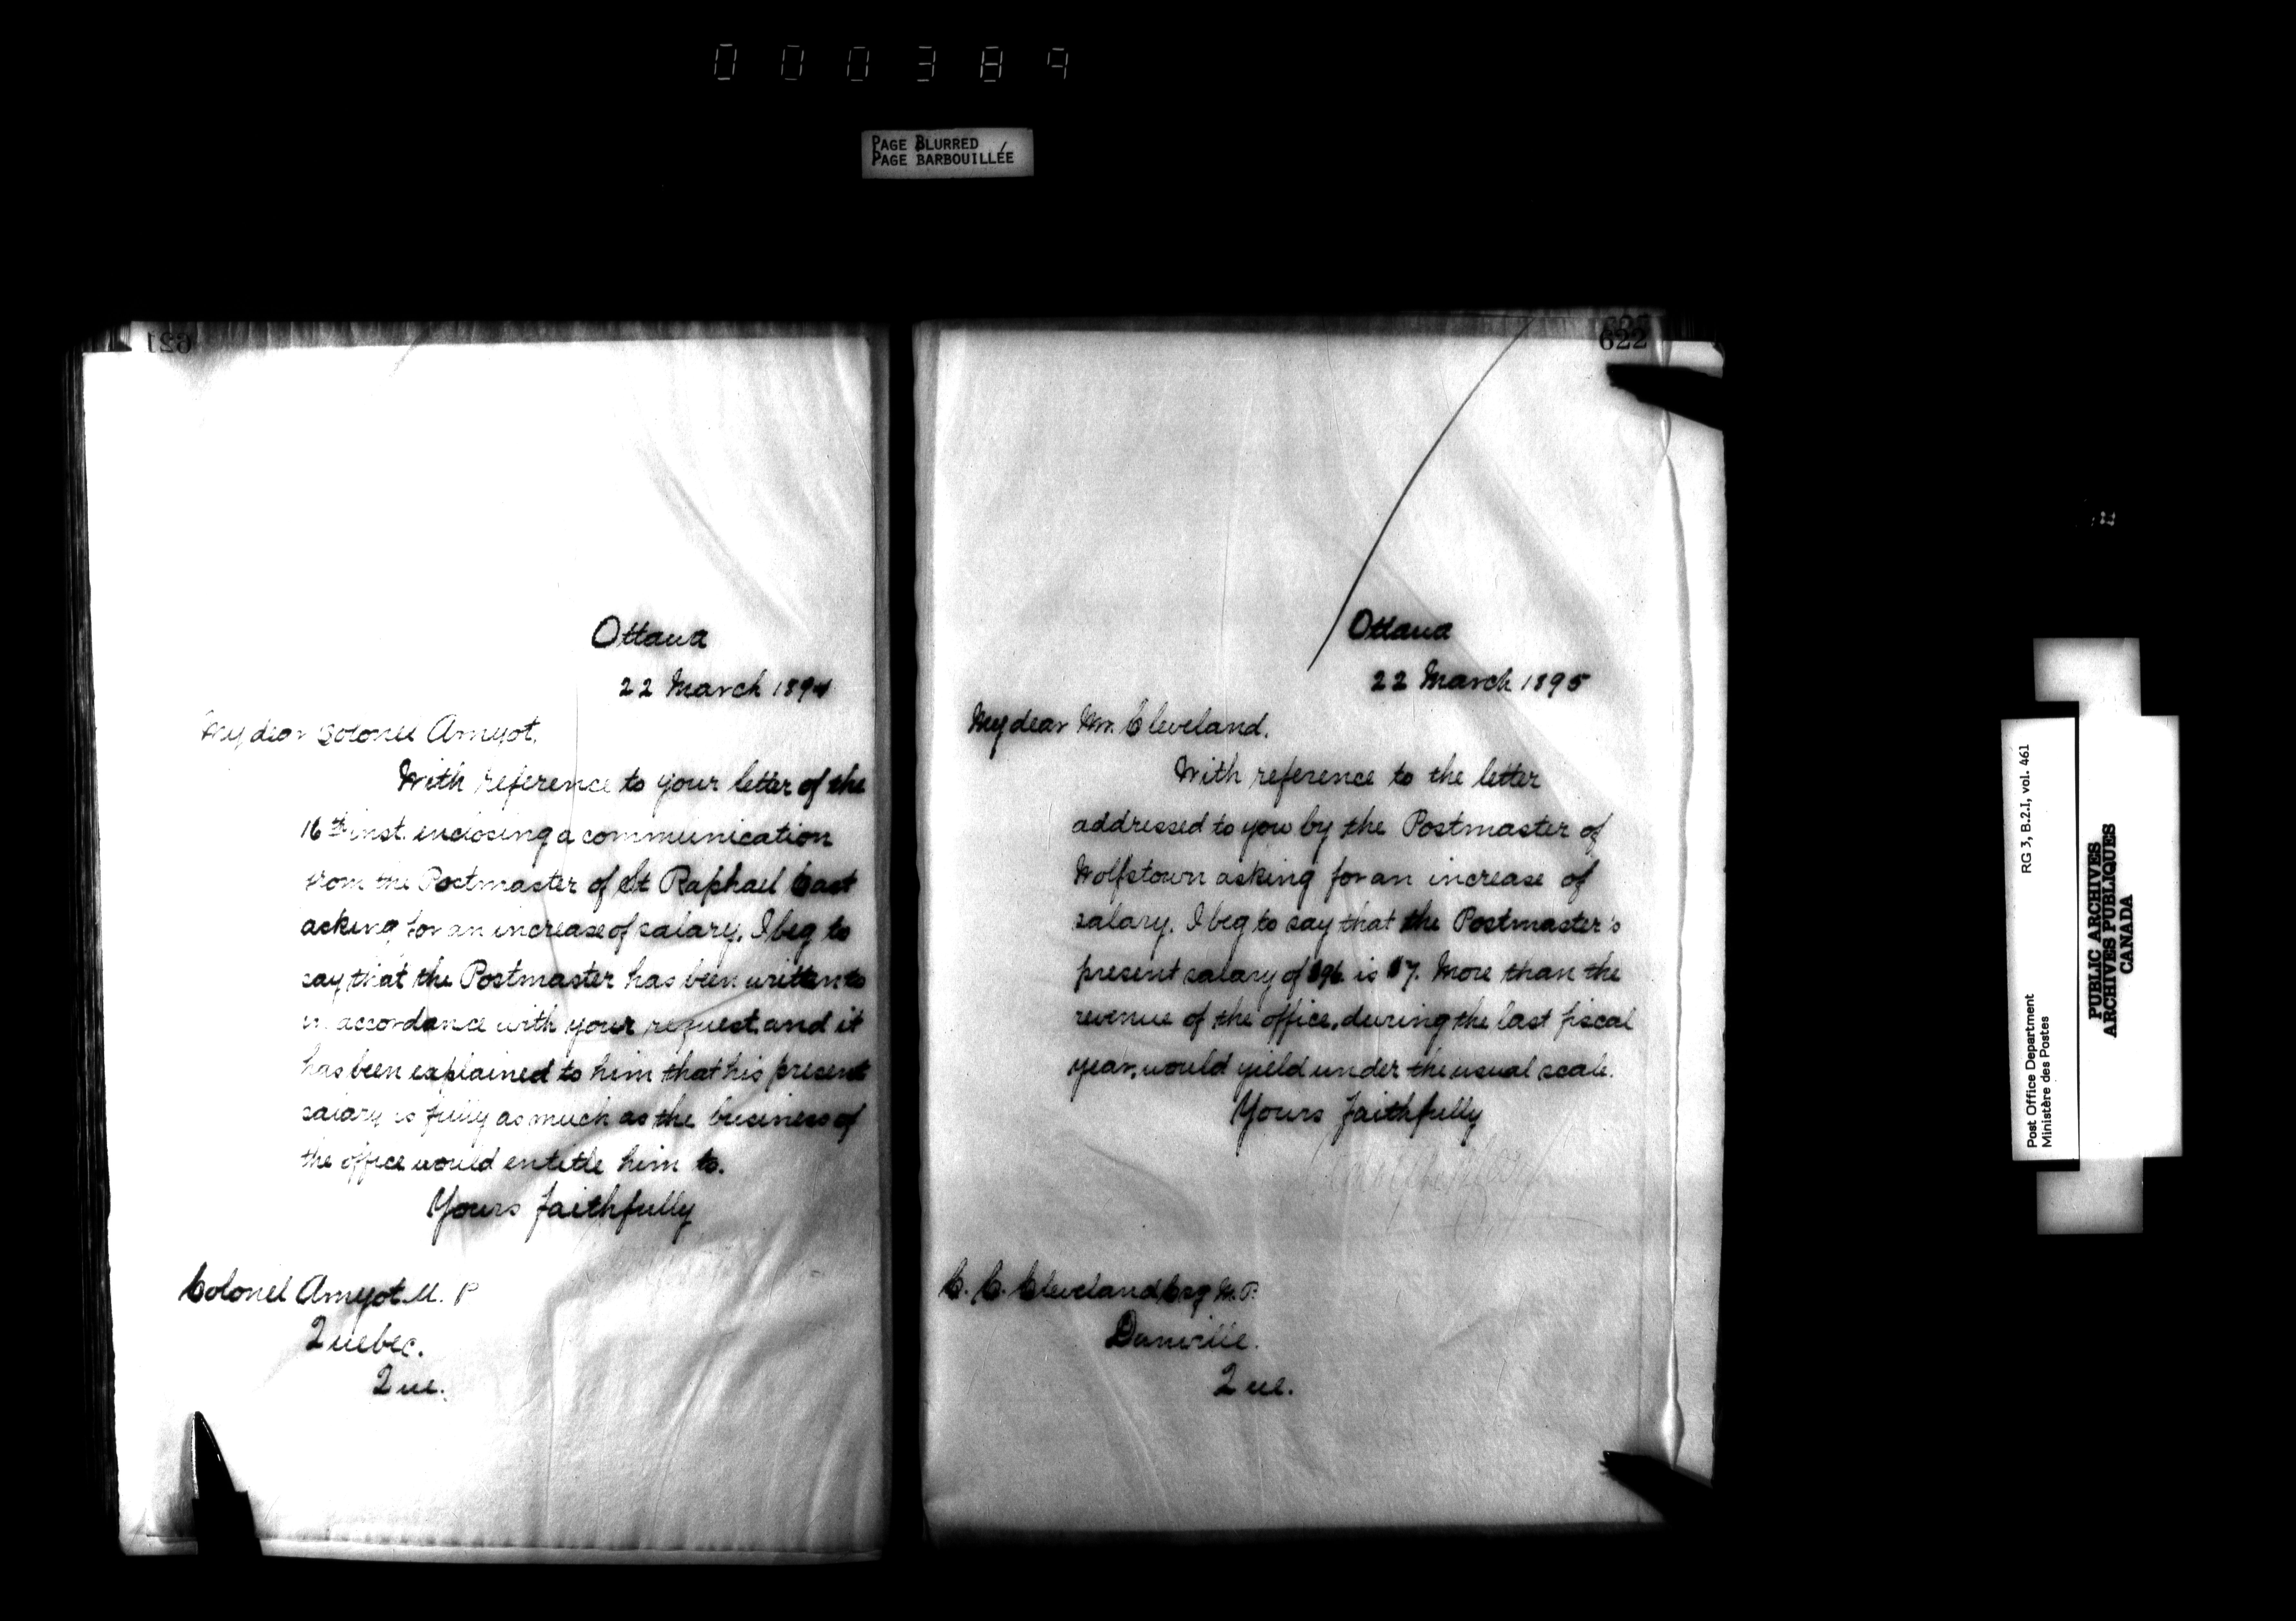 000389
PAGE BLURRED
PAGE BARBOUILLÉE
621
Ottawa
22 March 1894
My dear Colonel Amyot,
With reference to your letter of the
16th inst. inclosing a communication
from the Postmaster of St Raphael East
asking for an increase of salary, I beg to
say that the Postmaster has been written to
in accordance with your request, and it
has been explained to him that his present
salary is fully as much as the business of
the office would entitle him to.
Yours faithfully
Colonel Amyot M. P
Quebec.
Que.
622
Ottawa
22 March 1895
My dear Mr. Cleveland.
With reference to the letter
addressed to you by the Postmaster of
Wolfstown asking for an increase of
salary. I beg to say that the Postmaster's
present salary of $96 is $7. More than the
revenue of the office, during the last fiscal
year, would yield under the usual scale.
Yours faithfully
C. C. Cleveland Esq M. P.
Danville.
Que.
Post Office Department
Ministère des Postes
RG 3, B.2.I, vol. 461
PUBLIC ARCHIVES
ARCHIVES PUBLIQUES
CANADA